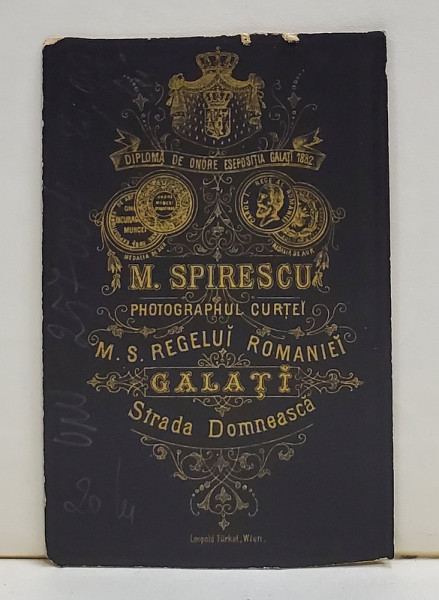 DIPLOMĂ DE ONORE ESEPOSIŢIA GALAŢI 1882
MEDALIA DE AUR
MEDALIA DE AUR
M. SPIRESCU
PHOTOGRAPHUL CURTEĬ
M. S. REGELUĬ ROMANIEĬ
GALAŢĬ
Strada Domnească
Leopold Türkel, Wien.
20 lei